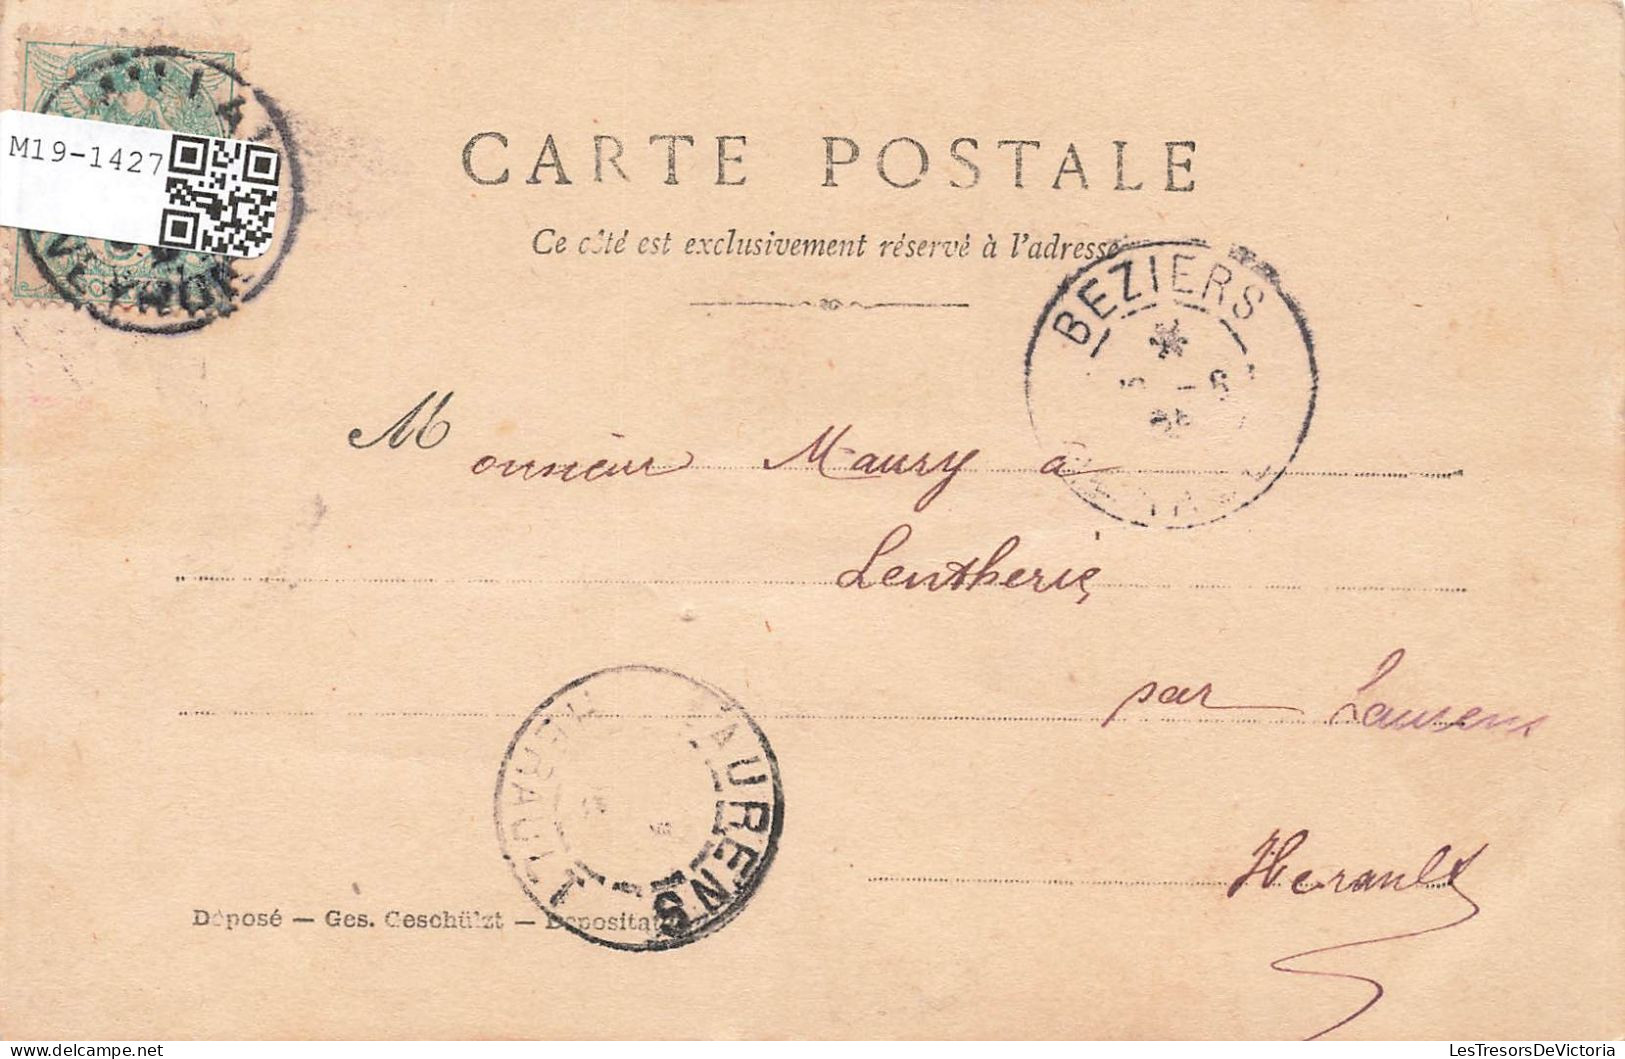 M19-1427
CARTE POSTALE
Ce côté est exclusivement réservé à l'adresse
BEZIERS
Monsieur Maury à
Lentheric
par Laurens
Herault
LAURENS
HERAULT
Déposé — Ges. Geschützt — Depositat
www.delcampe.net
LesTresorsDeVictoria